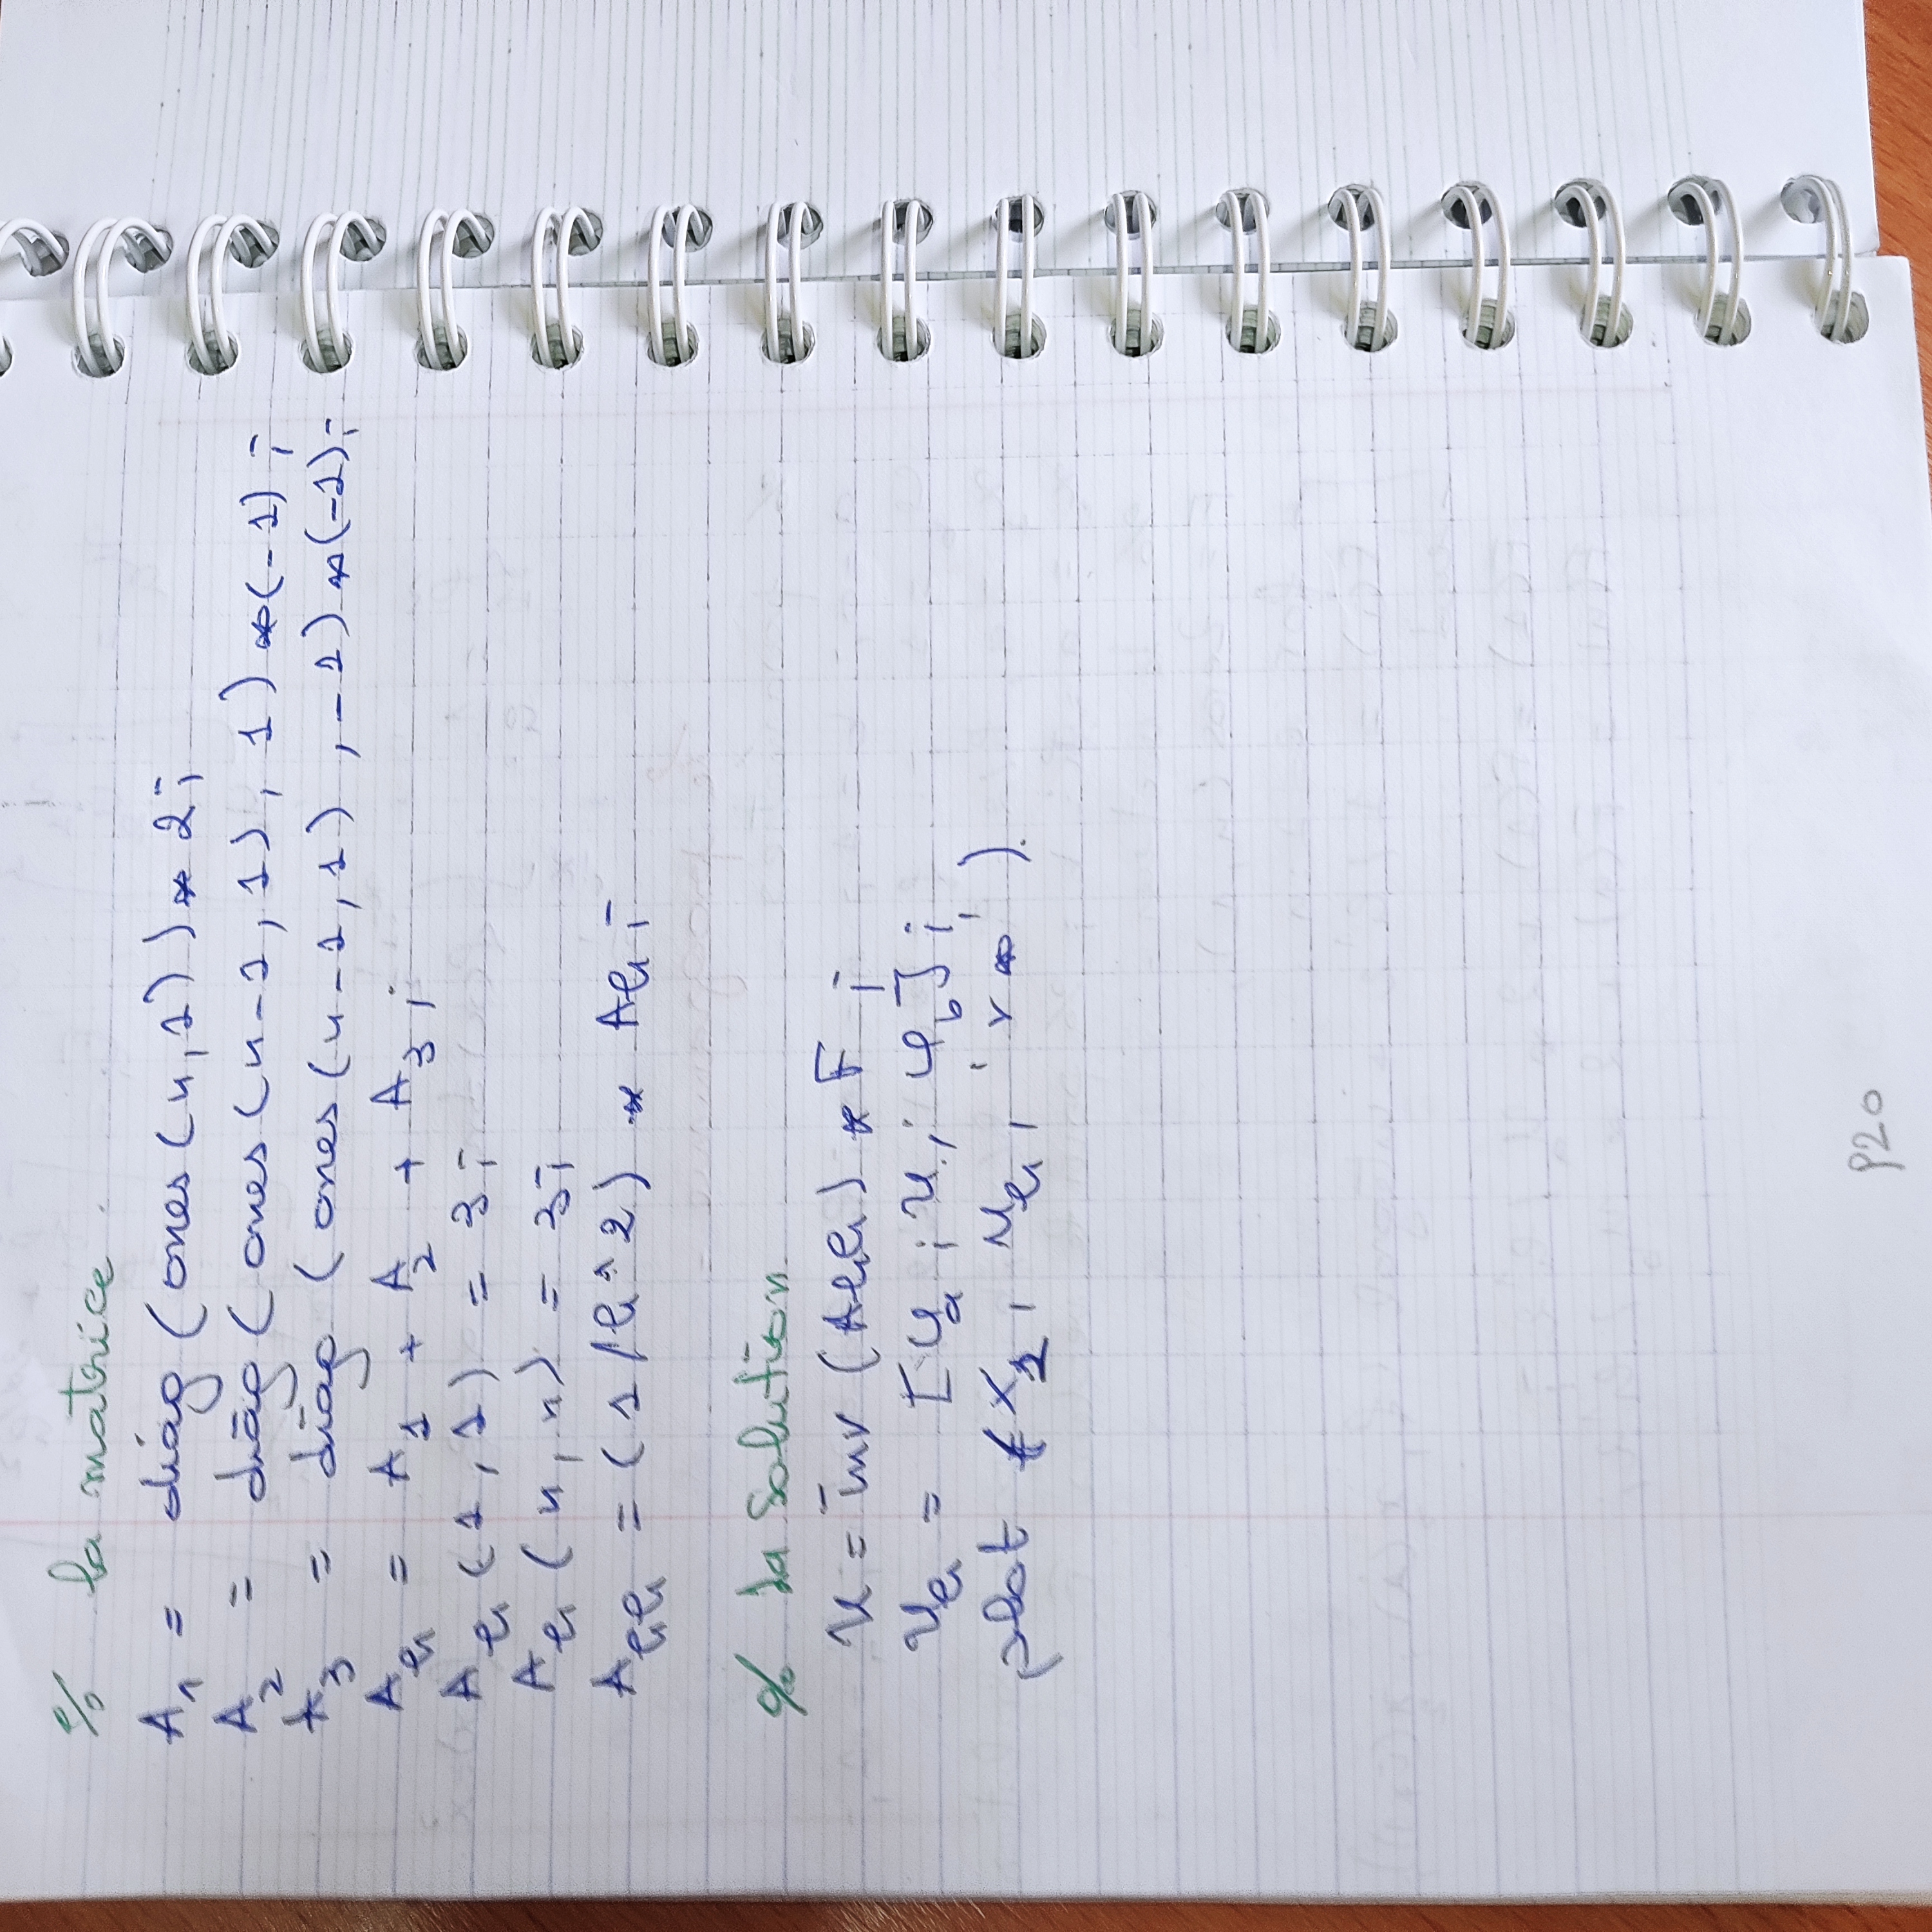 % la matrice
A₁ = diag (ones (n, 1)) * 2;
A₂ = diag ( ones (n-1, 1), 1) *(-1);
A₃ = diag ( ones (n-1, 1) , -1) *(-1);
Aₕ = A₁ + A₂ + A₃ ;
Aₕ (1, 1) = 3;
Aₕ (n, n) = 3;
Aₕₕ = (1/h^2) * Ah;
% la Solution
u = inv (Ahh) * F ;
uₕ = [ua ; u ; φb] ;
plot (x₂, uₕ, 'r*' ).
p20